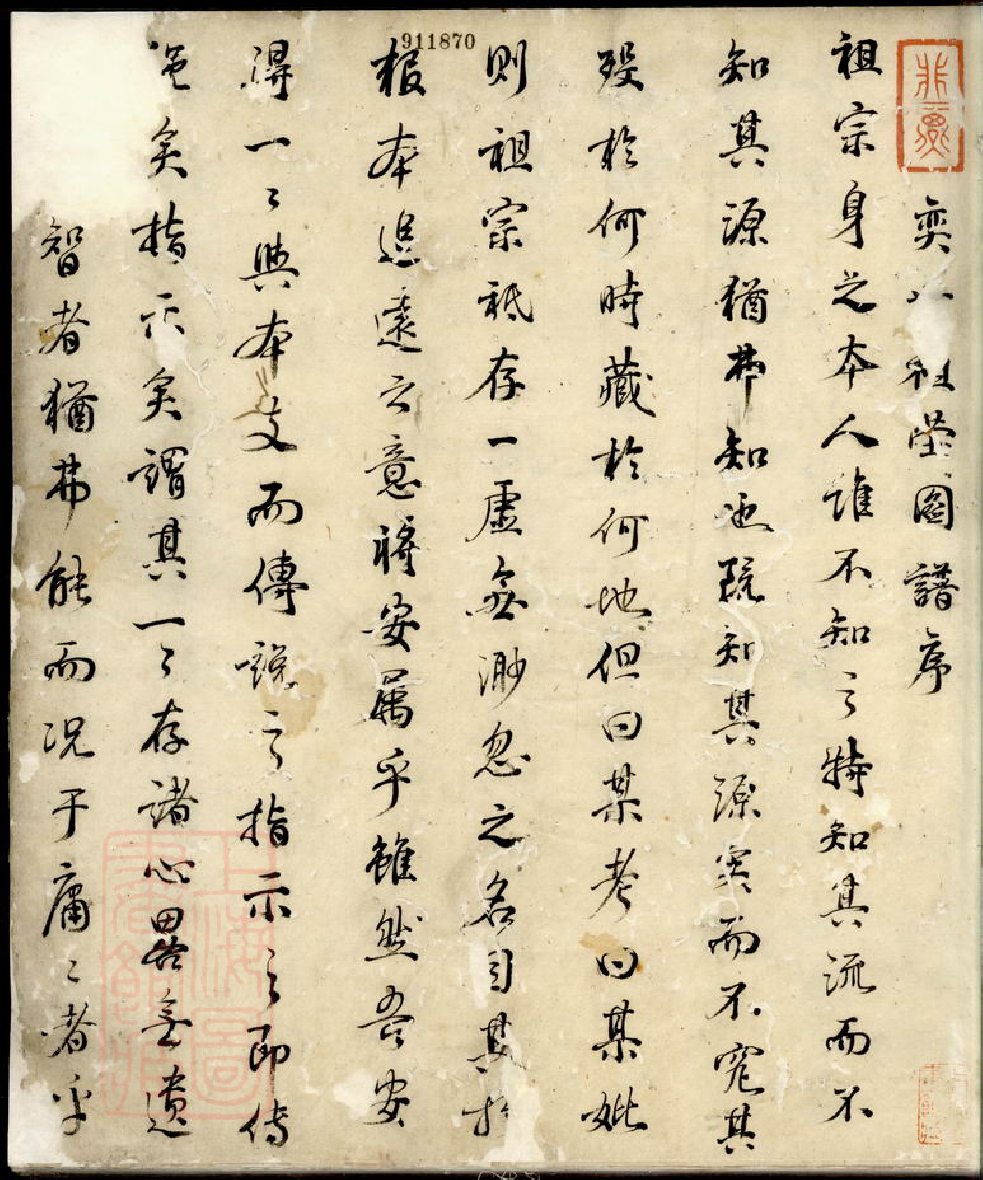 911870
奕 祖塋圖譜序
祖宗身之本人誰不知之特知其流而不
知其源猶弗知也既知其源矣而不究其
殁於何時藏於何地但曰某考曰某妣
則祖宗祇存一虛無渺忽之名目其於
根本追遠之意將安屬乎雖然吾安
得一〻與本支而傳說之指示之即傳
矣指示矣謂其一〻存諸心畧無遺
智者猶弗能而況于庸〻者乎
上海圖書館藏